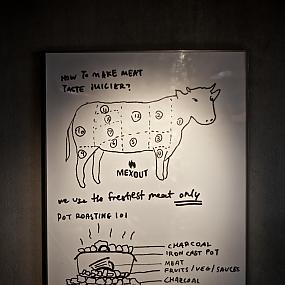 HOW TO MAKE MEAT
TASTE JUICIER?
MEXOUT
we use the freshest meat only
POT ROASTING 101
CHARCOAL
IRON CAST POT
MEAT
FRUITS/VEG/SAUCES
CHARCOAL